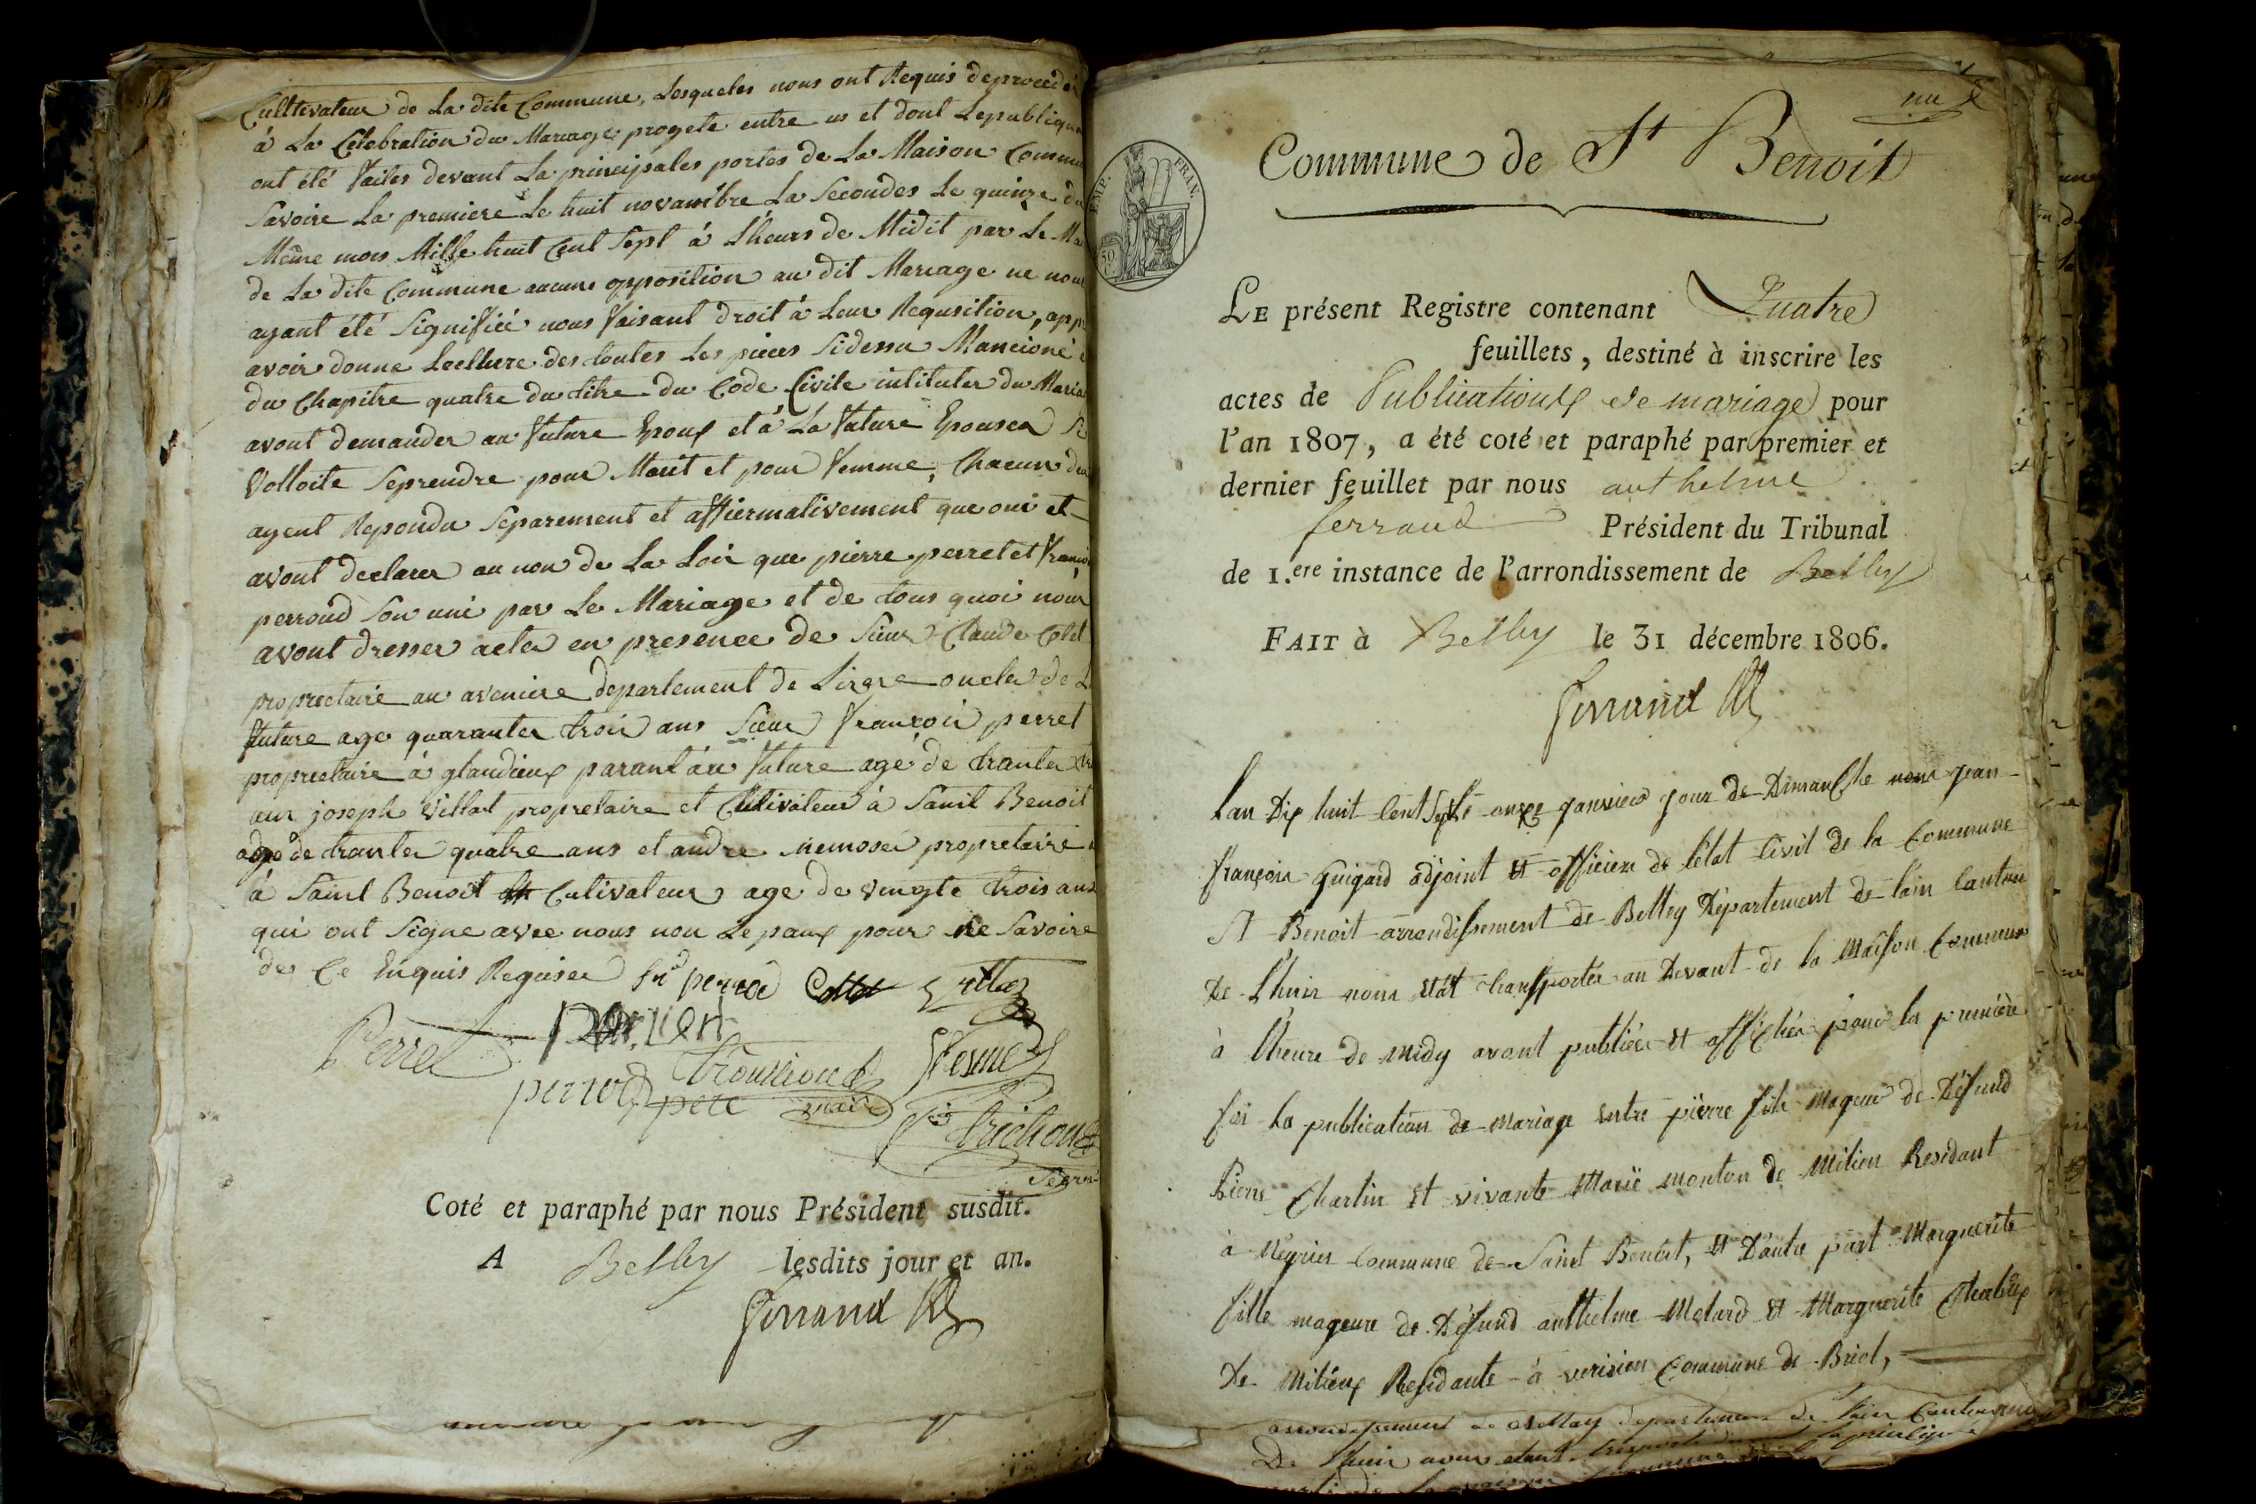 Cultivateur de La dite Commune, Lesqueles nous ont Requis de proceder
á La Celebration du Mariage progete entre us et dont Lepublique
ont été faites devant La principales portes de La Maison Commu
Savoire La premiere Le huit novambre La Secondes Le quinze du
Même mois Mille huit Cent Sept á L'heurs de Midit par Le Ma
de La dite Commune aucune opposition au dit Mariage ne nous
ayant été Signifiéé nous faisant droit á Leur Requsition, app
avoir donne Leellure des toutes Les pieces Sidessu Mancioné
du Chapitre quatre du titre du Code Civile intituler du Maria
avont demander au future Epoux et á La future Epousea Si
Volloite Seprendre pour Marit et pour femme, Chacun du
ayent Repondu Separement et affiermativement que oui et
avont declarer au non de La Loix que pierre perret et françoi
perroud Son uni par Le Mariage et de tous quoi nous
avont dresser actea en presence de Sieur Claude Colet
proprectaire au aveniere departement de Lizere oncles de L
future age quaranter troix ans Sieur françoix perret
proprectaire á glandieux parant áu future agé de tranter
au joseph Villat propretaire et Cultivateur á Sanit Benoit
age de tranter quatre ans et andre nemoser propretaire
á Saint Benoit Cultivateur age de vingte trois ans
qui ont Signe avec nous non Le paux pour ne Savoire
de Ce Enquis Requiser fr perroud Collet Villat
Perret
perroud pere Trouilloud maire
Trichon
Secr
Coté et paraphé par nous Président susdit.
A Belley lesdits jour et an.
Ferrand
Commune de St Benoit
EMP. FRAN.
50
LE présent Registre contenant Quatre
feuillets, destiné à inscrire les
actes de Publications de mariage pour
l'an 1807, a été coté et paraphé par premier et
dernier feuillet par nous anthelme
ferrand Président du Tribunal
de 1.ere instance de l'arrondissement de Belley
FAIT à Belley le 31 décembre 1806.
Ferrand
Lan Dix huit Cent Sept onze janvier jour de Dimanche nous jean
françois Guigard adjoint et officiere de l'état Civil de la Commune
St Benoit arrondissement de Belley Département de l'ain Canton
De L'huis nous étát transportér au Devant de la Maison Commune
à l'heure de midy avont publiéer et affichér pour la première
fois la publication de mariage entre pierre fils mageur de Défund
Pierre Charlin et vivante Marië monton de Milieu Residant
à Meyrieu Commune de Saint Benoit, et D'autre part Marguerite
fille mageure de Défund anthelme Molard et Marguerite Chabux
De Milieux Residante à verisieu Commune de Briol,
arrondissement de Bellay departement de Lain Canton
De Lhuis avons etant transporté